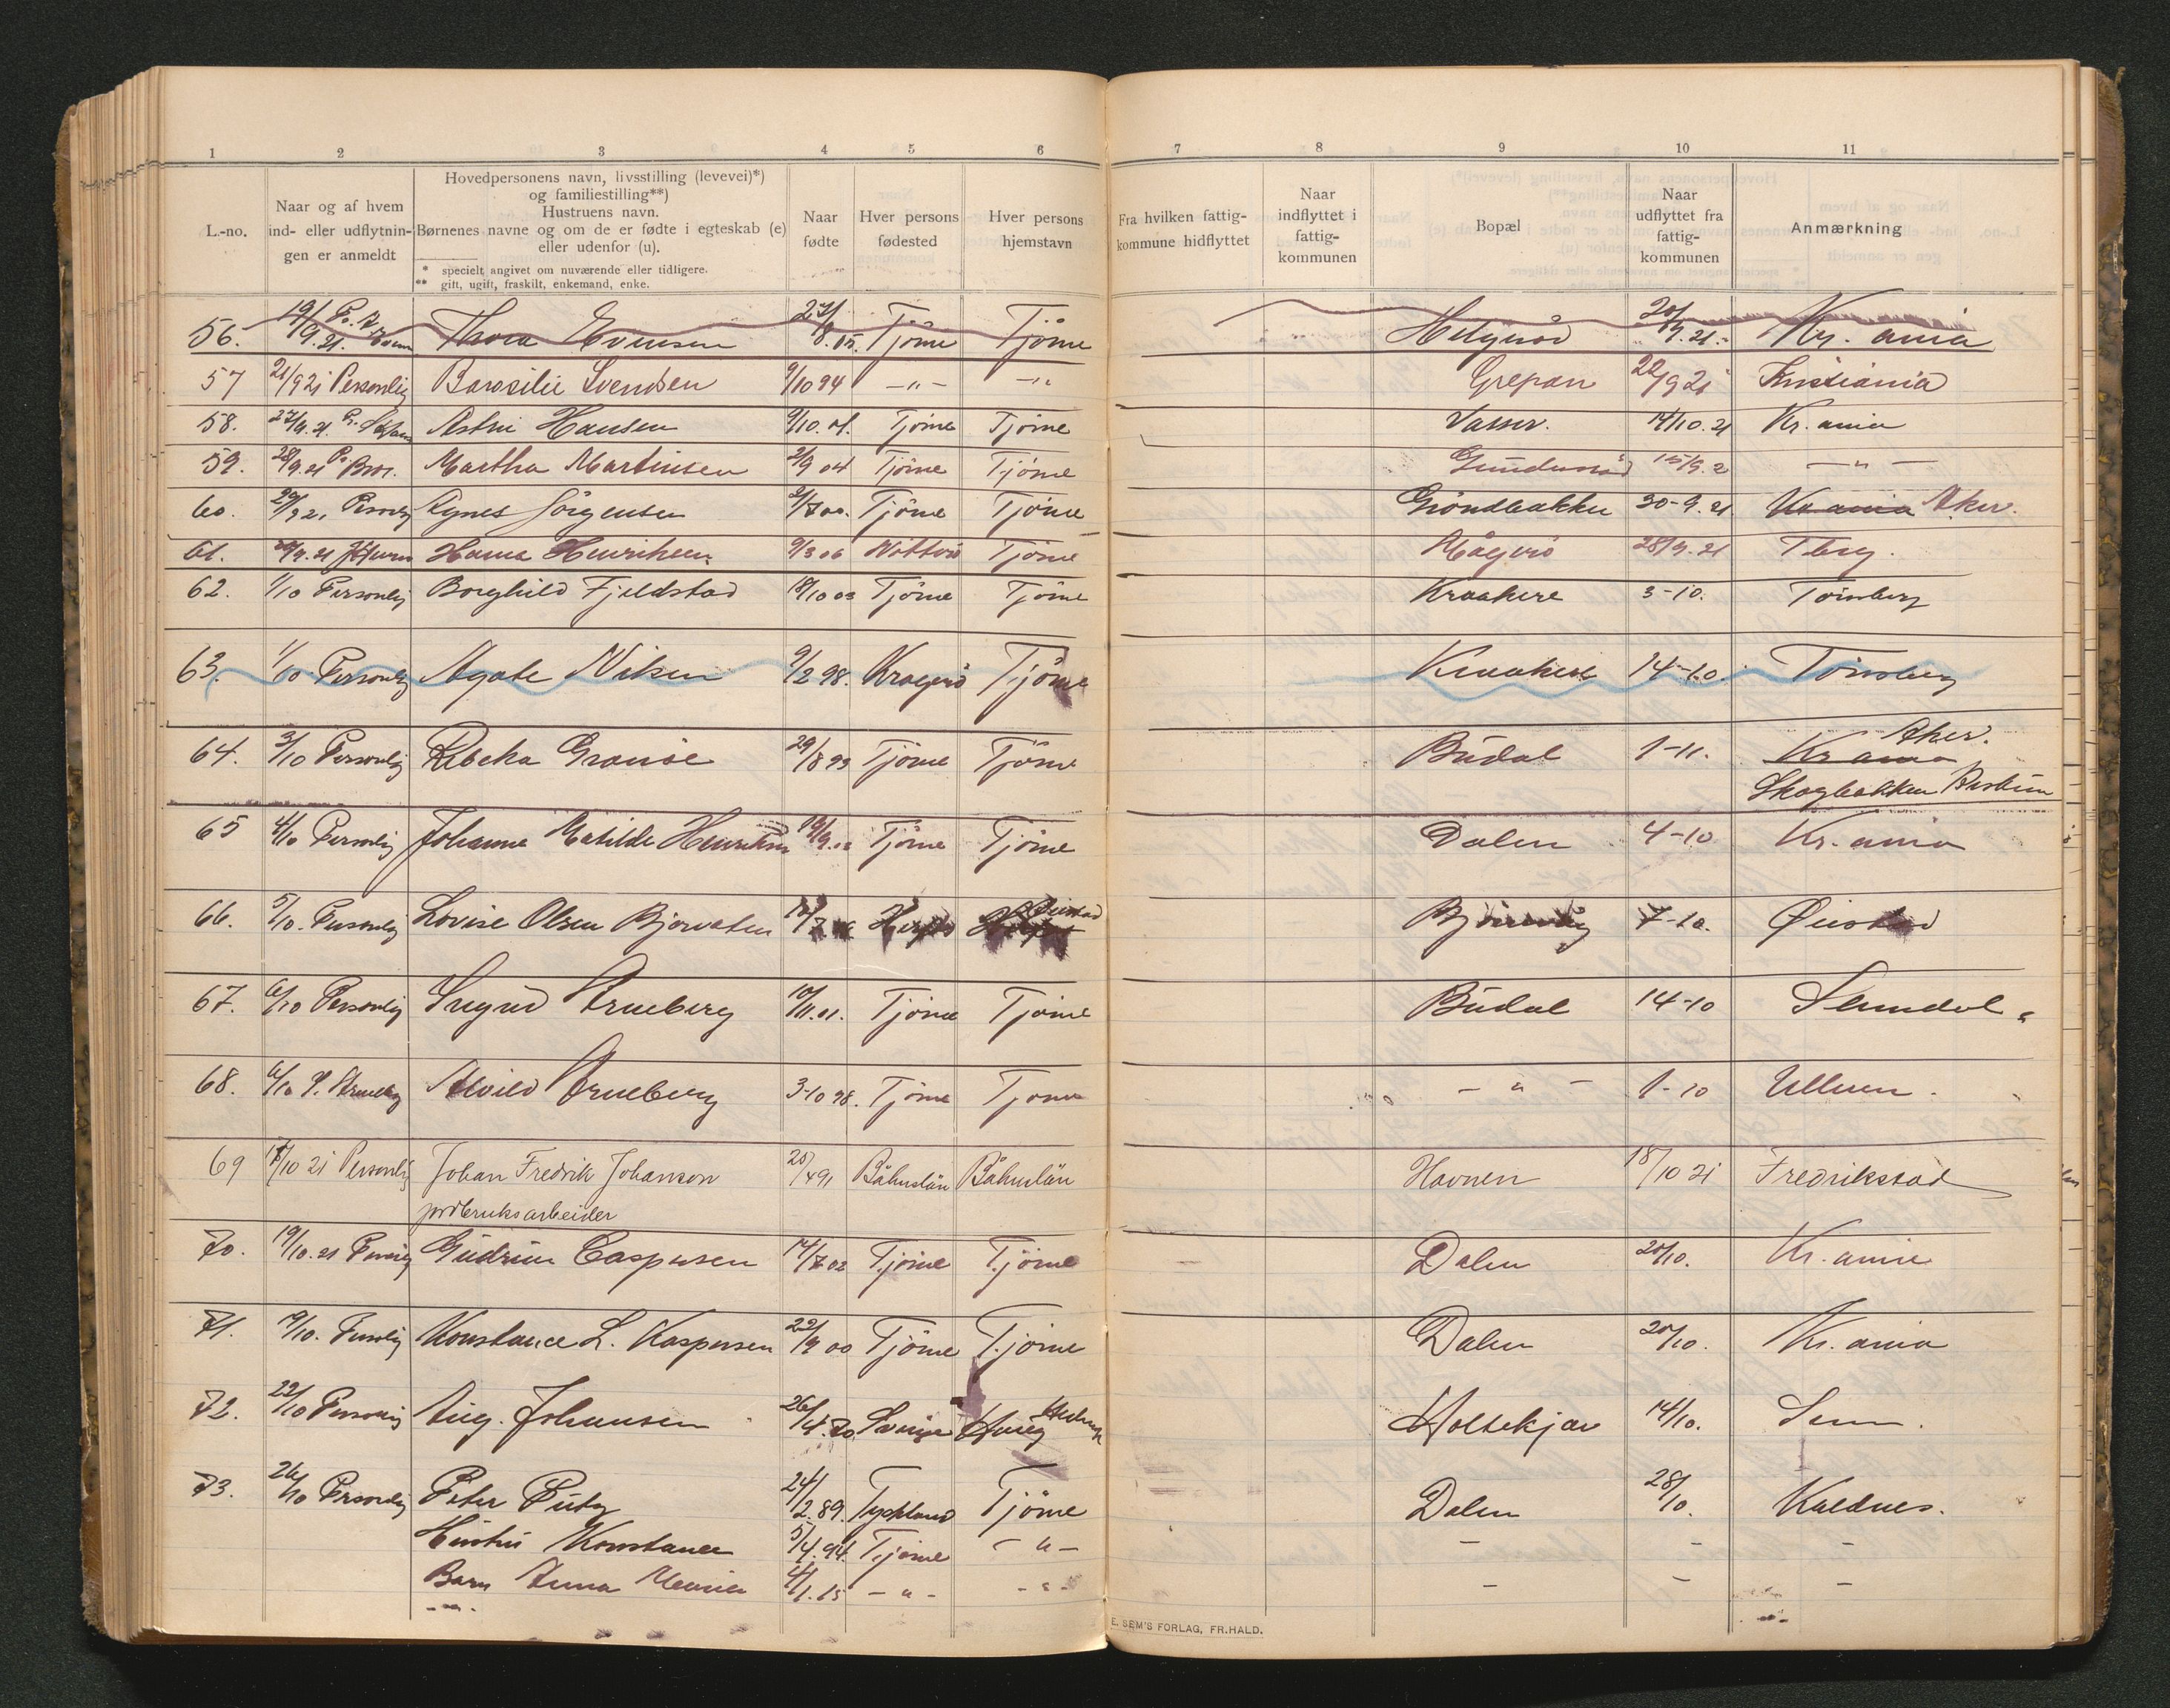 1 2 3 4 5 6 7 8 9 10 11
L.-no.
Naar og af hvem
ind- eller udflytnin-
gen er anmeldt
Hovedpersonens navn, livsstilling (levevei)*)
og familiestilling**)
Hustruens navn.
Børnenes navne og om de er fødte i egteskab (e)
eller udenfor (u).
* specielt angivet om nuværende eller tidligere.
** gift, ugift, fraskilt, enkemand, enke.
Naar
fødte
Hver persons
fødested
Hver persons
hjemstavn
Fra hvilken fattig-
kommune hidflyttet
Naar
indflyttet i
fattig-
kommunen
Bopæl
Naar
udflyttet fra
fattig-
kommunen
Anmærkning
56. 19/9.21. Thora Evensen 27/8.05. Tjöme Tjöme 20/9.21. Kr. ania
57 21/9 21 Personlig Svendsen 9/10 94 —„— —„— Grepan 22/9 21 Kristiania
58. 27/9.21. Astri Hansen 9/10.01. Tjöme Tjöme Vasser. 14/10.21 Kr. ania
59. 28/9.21 Martha Martinsen 2/9 04 Tjöme Tjöme 15/9.2 —„—
60. 29/9 21 Personlig Agnes Jörgensen 2/7 00. Tjöme Tjöme Gröndbakken 30-9.21 Kr ania Aker.
61. 29/9.21 Hanna Henriksen 9/3 06 Nötterö Tjöme Mågerö 28/9.21 Tberg.
62. 1/10 Personlig Borghild Fjeldstad 18/10 03 Tjöme Tjöme Kraakere 3-10. Tönsberg
63. 1/10 Personlig Agate Nilsen 9/2 98. Kragerö Tjöme Kraakere 14-10. Tönsberg
64. 3/10 Personlig Rebeka Granöe 29/8 99 Tjöme Tjöme Budal 1-11. Kr ania Aker.
Skogbakken Bestum
65 4/10 Personlig Johanne Matilde Henriksen 19/9.02 Tjöme Tjöme Dalen 4-10 Kr. ania
66. 5/10. Personlig Lovise Olsen Bjorvatn Øiestad 7-10. Øiestad
67. 6/10 Personlig Sigrid Arneberg 10/11.01. Tjöme Tjöme Budal 14-10
68. 6/10 P. Arneberg Alvild Arneberg 3-10 98. Tjöme Tjöme —„— 1-10 Ullern.
69 18/10 21 Personlig Johan Fredrik Johanson 20/4 91 Båhuslän Båhuslän Havnen 18/10 21 Fredrikstad
jordbruksarbeider
70. 19/10.21 Personlig Gudrun Caspersen 14/7 02 Tjöme Tjöme Dalen 20/10. Kr. ania
71. 19/10. Personlig Konstance L. Kaspersen 22/9 00 Tjöme Tjöme Dalen 20/10. Kr. ania
72. 22/10 Personlig Aug. Johansen 26/4.70 Sverige Holtekjær 14/10. Sem.
73. 26/10 Personlig Peter Putz 24/2.89. Tyskland Tjöme Dalen 28/10. Kaldnes.
Hustru Konstance 5/4.94. Tjöme —„— — — —
Barn Anna 4/1.15 —„— —„— — — —
E. SEM'S FORLAG, FR.HALD.